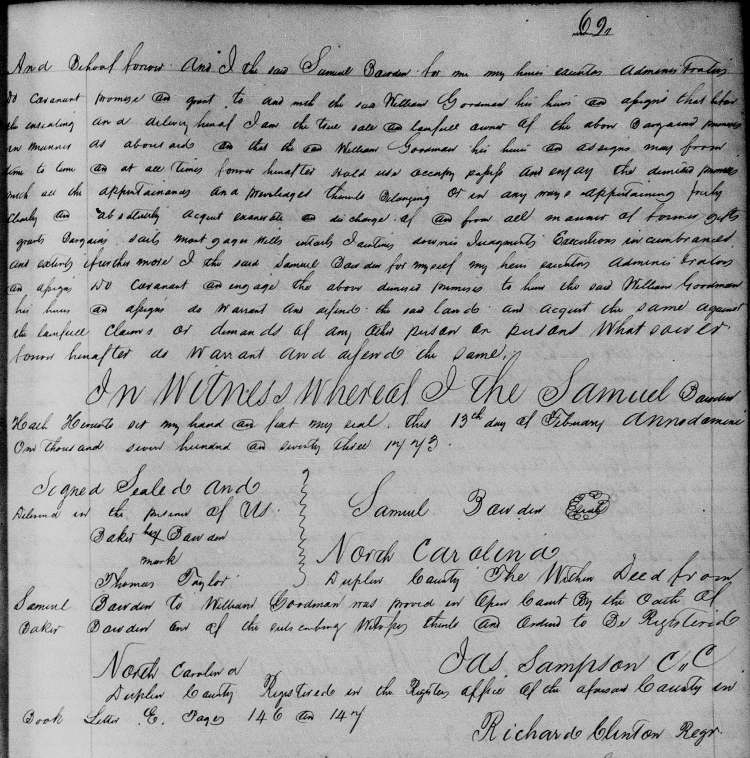 69
And Behoof forever And I the said Samuel Bawden for me my heirs executors Adminis trators
do Covanant promise an grant to and with the said William Goodman his heirs an assigns that befor
the ensealing and delivery hereof I am the true sole an lawfull owner of the above Bargained premises
in manner as abovesaid an that the William Goodman his heirs an assigns may from
time to time an at all times forever hereafter hold use occupy possess and enjoy the demised premises
with all the appurtainances and previleages thereto Belonging Or in any ways Appertaining freely
Clearly an absolutely acquit exonerate an discharge of an from all manner of former gifts
grants Bargains sails mortgages wills intails Joentures dowries Judgments Executions incumbrances
and extents furthermore I the said Samuel Bawden for myself my heirs executors Adminis trators
an assigns do Covanant an engage the above demised premises to him the said William Goodman
his heires an assigns do warrant and defend the said land and acquit the same against
the lawfull claims or demands of any other person or persons Whatsoever
forever hereafter do Warrant and defend the same,
In Witness Whereof I the Samuel Bawden
Hath Hereunto set my hand an seal this 13th day of February Annodomine
One thousand seven hundred an seventy three 1773.
Signed Sealed and
Delivered in the presence of Us.
Baker his X Bawden
mark
Thomas Taylor
Samuel Bawden Seal
North Carolina
Duplin County The Within Deed from
Samuel Bawden to William Goodman was proved in Open Court By the Oath of
Baker Bawden one of the subscribing Witness thereto and Ordered to Be Registered
Jas. Sampson C.C
North Carolina
Duplin County Registered in the Registers office of the aforesaid County in
Book Letter E. Pages 146 an 147
Richard Clinton Regr.